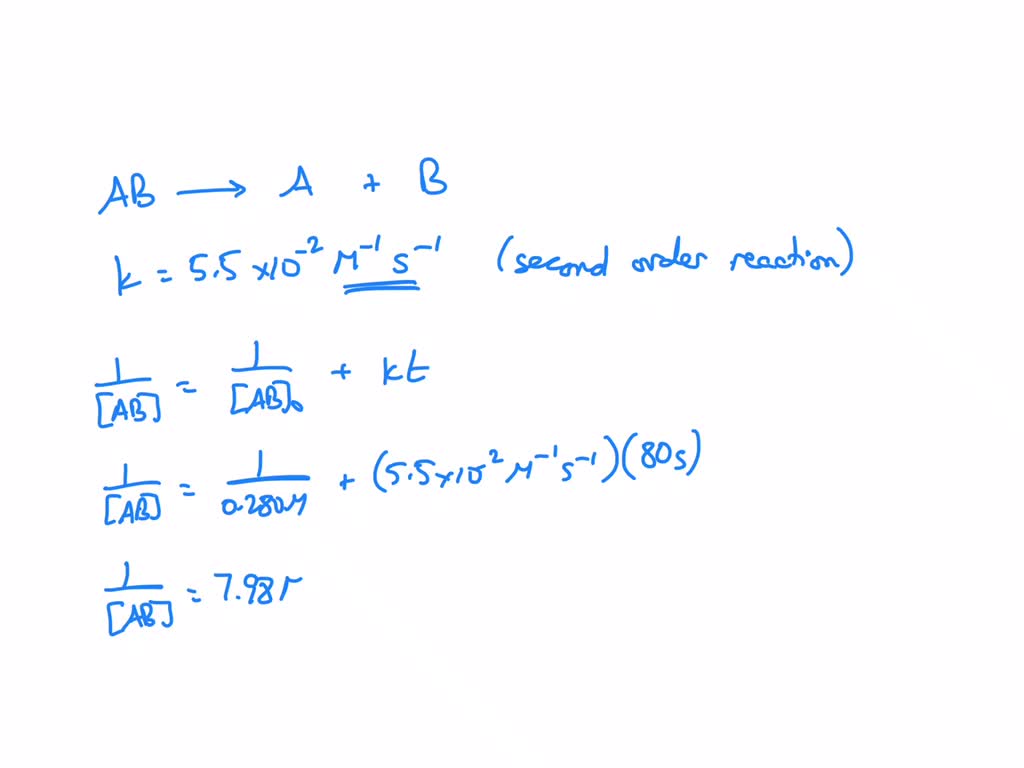 AB → A + B
k = 5.5 × 10⁻² M⁻¹ s⁻¹ (second order reaction)
1/[AB] = 1/[AB]₀ + kt
1/[AB] = 1/0.280M + (5.5×10⁻² M⁻¹s⁻¹)(80s)
1/[AB] = 7.98